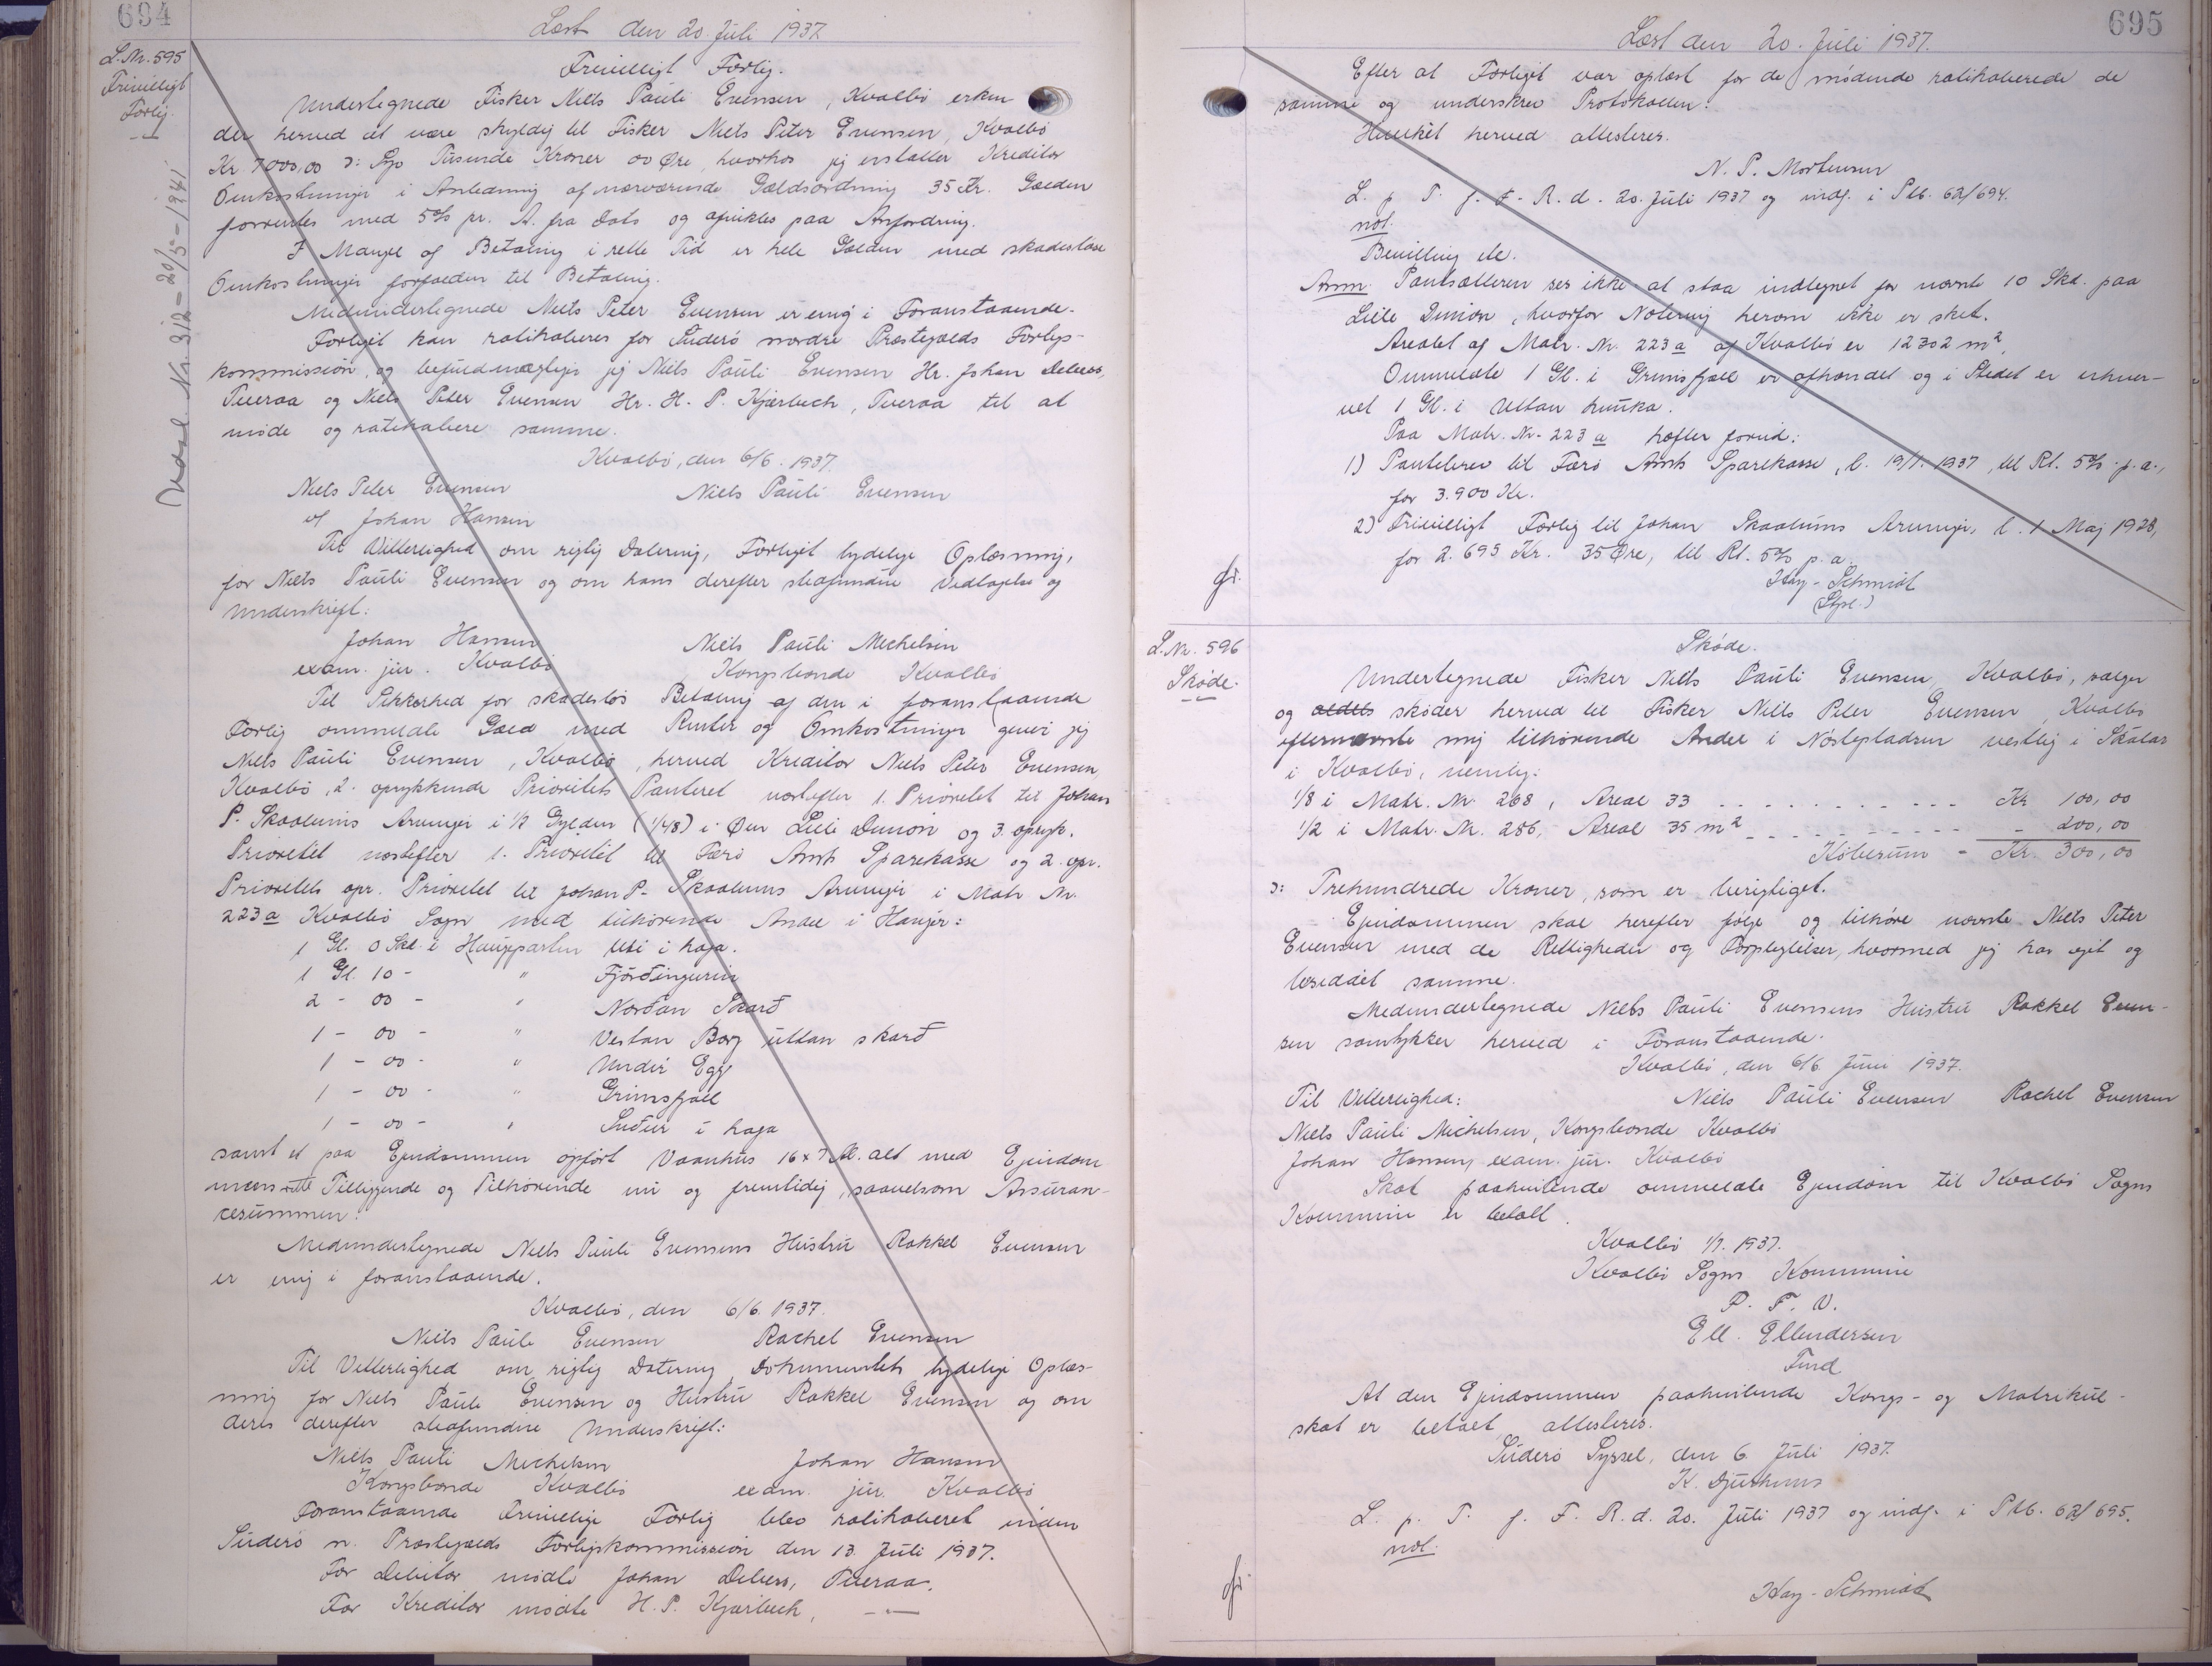 694
Læst den 20. Juli 1937.
L. Nr. 595
Frivilligt
Forlig.
Udsl. Nr. 312 - 20/5 - 1941
Frivilligt Forlig.
Undertegnede Fisker Niels Pauli Evensen, Kvalbø erken
der herved at være skyldig til Fisker Niels Peter Evensen, Kvalbø
Kr. 7000,00 ɔ: Syv Tusinde Kroner 00 Øre, hvorhos jeg erstatter Kreditor
Omkostninger i Anledning af nærværende Gældsordning 35 Kr. Gælden
forrentes med 5% pr. A. fra Dato og afvikles paa Anfordring.
I Mangel af Betaling i rette Tid er hele Gælden med skadesløse
Omkostninger forfalden til Betaling.
Medundertegnede Niels Peter Evensen er enig i Foranstaaende.
Forliget kan ratihaberes for Suderø nordre Præstegjælds Forligs-
kommission, og befuldmægtiger jeg Niels Pauli Evensen Hr. Johan Debess,
Tveraa og Niels Peter Evensen Hr. H. P. Kjærbech, Tveraa til at
møde og ratihabere samme.
Kvalbø, den 6/6. 1937.
Niels Peter Evensen Niels Pauli Evensen
v/ Johan Hansen
Til Vitterlighed om rigtig Datering, Forliget tydelige Oplæsning,
for Niels Pauli Evensen og om hans derefter stedfundne Vedtagelse og
Underskrift:
Johan Hansen Niels Pauli Mechelsen
exam. jur. Kvalbø Kongsbonde Kvalbø
Til Sikkerhed for skadesløs Betaling af den i foranstaaende
Forlig ommeldte Gæld med Renter og Omkostninger giver jeg
Niels Pauli Evensen, Kvalbø, herved Kreditor Niels Peter Evensen,
Kvalbø, 2. oprykkende Prioritets Panteret næstefter 1. Prioritet til Johan
P. Skaalums Arvinger i 1/3 Gylden (1/48) i Øen Lille Dimon og 3. opryk.
Prioritet næstefter 1. Prioritet til Færø Amts Sparekasse og 2. opr.
Prioritets opr. Prioritet til Johan P. Skaalums Arvinger i Matr. Nr.
223 a Kvalbø Sogn med tilhørende Andel i Haugen:
1 Gl. 0 Skd. i Haugeparten Uti i haga.
1 Gl. 10 - " Fjórðingurin
2 - 00 - " Norðan Skarð
1 - 00 - " Vestan Borg uttan skarð
1 - 00 - " Undir Egg
1 - 00 - " Grimsfjall
1 - 00 - " Suður i haga
samt et paa Ejendommen opført Vaanhus 16 x 7 Al. alt med Ejendom
mens rette Tilliggende og Tilhørende nu og fremtidig, saavelsom Assuran-
cesummen.
Medundertegnede Niels Pauli Evensens Hustru Rakkel Evensen
er enig i foranstaaende.
Kvalbø, den 6/6. 1937.
Niels Pauli Evensen Rachel Evensen
Til Vitterlighed om rigtig Datering, Dokumentets tydelige Oplæs-
ning for Niels Pauli Evensen og Hustru Rakkel Evensen og om
deres derefter stedfundne Underskrift:
Niels Pauli Mechelsen Johan Hansen
Kongsbonde Kvalbø exam. jur. Kvalbø
Foranstaaende frivillige Forlig blev ratihaberet inden
Suderø n. Præstegjælds Forligskommission den 13. Juli 1937.
For Debitor mødte Johan Debess, Tveraa.
For Kreditor mødte H. P. Kjærbech, —"—
695
Læst den 20. Juli 1937.
Efter at Forliget var oplæst for de mødende ratihaberede de
samme og underskrev Protokollen.
Hvilket herved attesteres.
N. P. Mortensen
L. p. T. f. F. R. d. 20. Juli 1937 og indf. i Ptb. 62/694.
not.
Bevilling etc.
Anm. Pantsætteren ses ikke at staa indtegnet for nævnte 10 Skd. paa
Lille Dimon, hvorfor Notering herom ikke er sket.
Arealet af Matr. Nr. 223 a af Kvalbø er 12302 m²,
Ommeldte 1 Gl. i Grimsfjall er afhændet og i Stedet er erhver-
vet 1 Gl. i Uttan hunka.
Paa Matr. Nr. 223 a hæfter forud:
1) Pantebrev til Færø Amts Sparekasse, l. 19/1. 1937, til Rt. 5% p.a.,
for 3.900 Kr.
2) Frivilligt Forlig til Johan Skaalums Arvinger, l. 1 Maj 1928,
for 2.695 Kr. 35 Øre, til Rt. 5% p.a.
Kay-Schmidt
(Stpl.)
L. Nr. 596
Skøde.
Skøde.
Undertegnede Fisker Niels Pauli Evensen, Kvalbø, sælger
og skøder herved til Fisker Niels Peter Evensen, Kvalbø
efternævnte mig tilhørende Andel i Nóstepladsen vestlig i Skálar
i Kvalbø, nemlig:
1/8 i Matr. Nr. 268, Areal 33 - - - - - - Kr. 100,00
1/2 i Matr. Nr. 286, Areal 35 m² - - - - - - - 200,00
Købesum - Kr. 300,00
ɔ: Trehundrede Kroner, som er berigtiget.
Ejendommen skal herefter følge og tilhøre nævnte Niels Peter
Evensen med de Rettigheder og Forpligtelser, hvormed jeg har ejet og
besiddet samme.
Medundertegnede Niels Pauli Evensens Hustru Rakkel Even-
sen samtykker herved i Foranstaaende.
Kvalbø, den 6/6 Juni 1937.
Til Vitterlighed: Niels Pauli Evensen Rachel Evensen
Niels Pauli Michelsen, Kongsbonde Kvalbø
Johan Hansen, exam. jur. Kvalbø
Skat paahvilende ommeldte Ejendom til Kvalbø Sogns
Kommune er betalt.
Kvalbø 1/7. 1937.
Kvalbø Sogns Kommune
P. F. V.
Ell. Ellendersen
Fmd
At den Ejendommen paahvilende Kongs- og Matrikul-
skat er betalt, attesteres.
Suderø Syssel, den 6. Juli 1937.
K. Djurhuus
L. p. T. f. F. R. d. 20. Juli 1937 og indf. i Ptb. 62/695.
not.
Kay-Schmidt